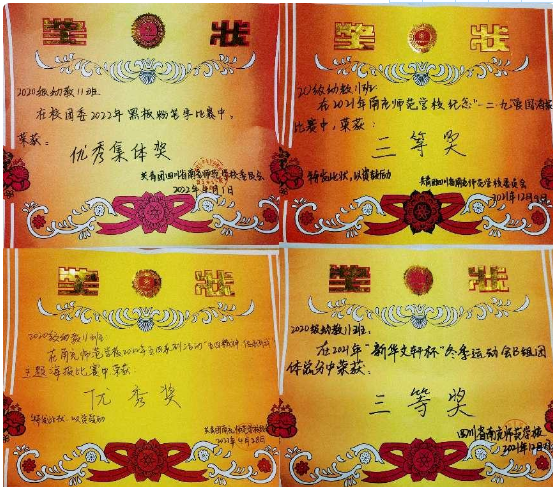 奖 状
2020级幼教11班:
在校团委2022年黑板粉笔字比赛中,
荣获:
优秀集体奖
共青团四川省南充师范学校委员会
2022年 月1日
奖 状
20级幼教11班:
在2021年南充师范学校纪念“一二·九”
比赛中,荣获:
三等奖
特发此状,以资鼓励
共青团四川省南充师范学校委员会
2021年12月9日
奖 状
2020级幼教11班:
在南充师范学校2022年 系列活动
主题海报比赛中荣获
优秀奖
特发此状,以资鼓励
共青团南充师范学校
2022年4月28日
奖 状
2020级幼教11班:
在2021年“新华文轩杯”冬季运动会B组团
体总分中荣获:
三等奖
四川省南充师范学校
2021年12月